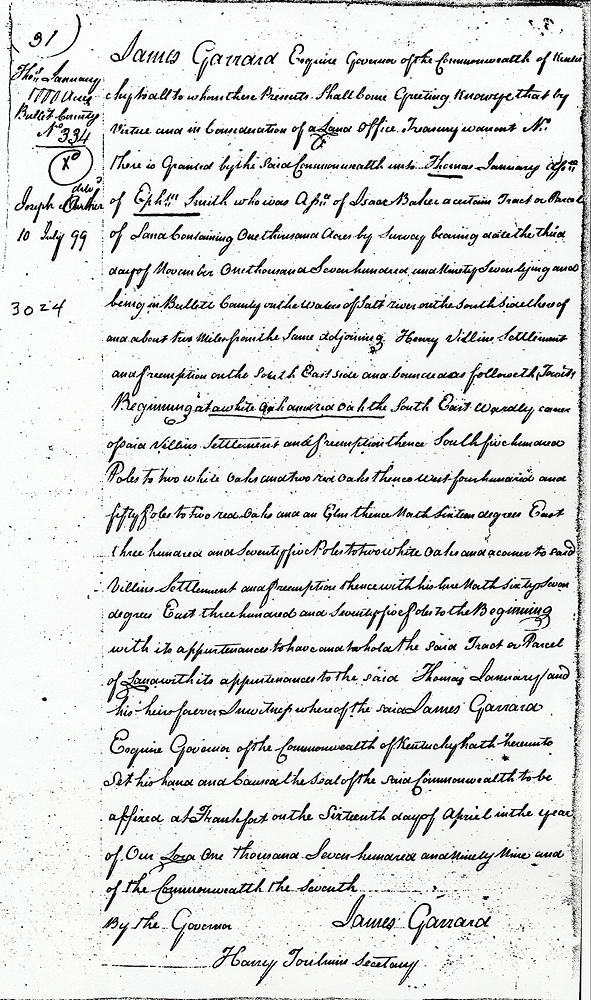 31
Thos. January
1000 Acres
Bullet County
No 334
Xd
deld
Joseph
10 July 99
3024
James Garrard Esquire Governor of the Commonwealth of Kentu
cky to all to whom these Presents Shall Come Greeting Know ye that by
Virtue and in Consideration of a Land Office Treasury warrant No.
There is Granted by the Said Commonwealth unto Thomas January assee
of Ephm Smith who was assee of Isaac Baker a certain Tract or Parcel
of Land Containing One thousand Acres by Survey bearing date the third
day of November One thousand Seven hundred and Ninety Seven lying and
being in Bullett County on the Waters of Salt river on the South Side there of
and about two Miles from the Same adjoining Henry Villins Settlement
and Preemption on the South East side and bounded as followeth Towit
Beginning at a white Oak and red Oak the South East Wardly corner
of said Villins Settlement and Preemption thence South five hundred
Poles to two white Oaks and two red Oaks thence West four hundred and
fifty Poles to two red Oaks and an Elm thence North Sixteen degrees East
three hundred and Seventy five Poles to two white Oaks and a corner to said
Villins Settlement and Preemption thence with his line North Sixty Seven
degrees East three hundred and Seventy five Poles to the Beginning
with its appurtenances to have and to hold the said Tract or Parcel
of Land with its appurtenances to the said Thomas January and
his heirs forever In witness whereof the said James Garrard
Esquire Governor of the Commonwealth of Kentucky hath hereunto
Set his hand and Caused the Seal of the said Commonwealth to be
affixed at Frankfort on the Sixteenth day of April in the year
of Our Lord One thousand Seven hundred and Ninety Nine and
of the Commonwealth the Seventh
By the Governor James Garrard
Harry Toulmin Secetary